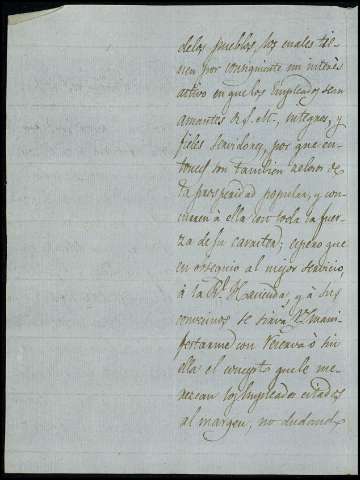 delos pueblos, los cuales tie-
nen por consiguiente un interès
activo en que los Empleados sean
amantes de S. M., integros, y
fieles servidores, por que en-
tonces son tambien zelosos de
la prosperidad popular, y con-
curren à ella con toda la fuer-
za de su caracter; espero que
en obsequio al mejor servicio
à la Rl. Hacienda, y à sus
convecinos se sirva V. mani-
festarme con reserva ò sin
ella el concepto que le me-
rezcan los Empleados citados
al margen, no dudando